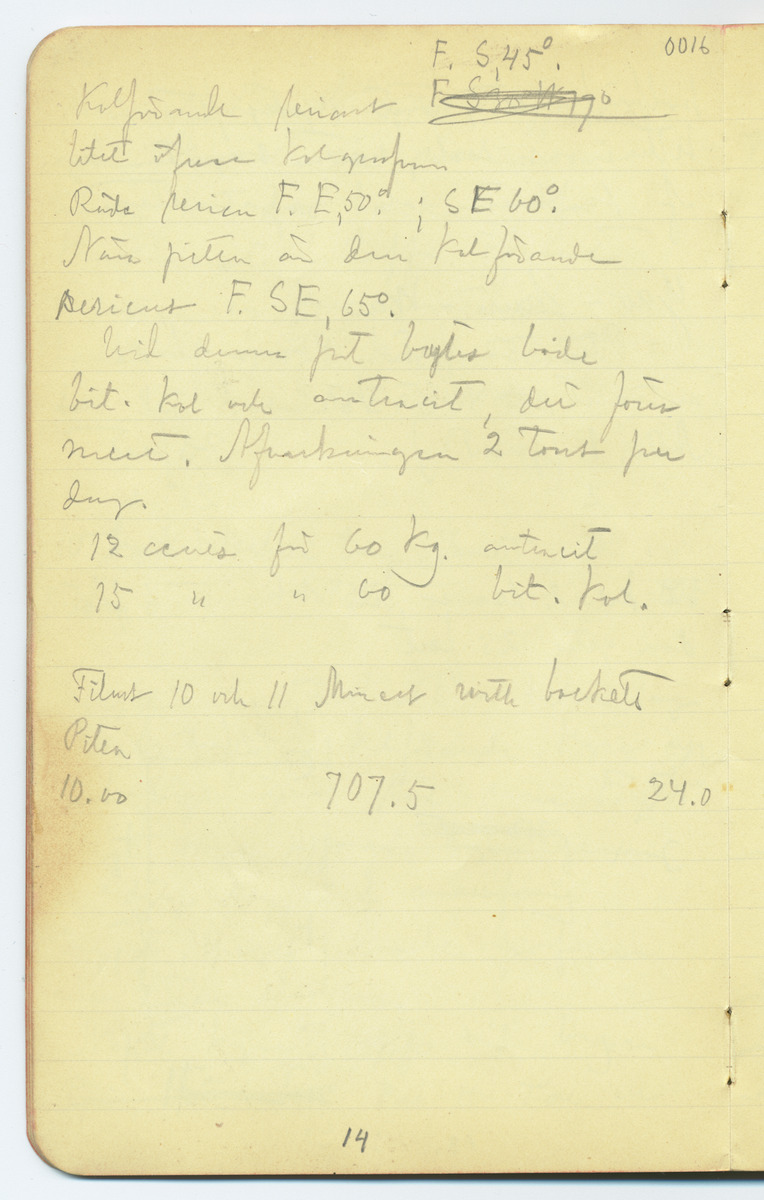 0016
F. S, 45°.
Kolförande seriens
litet öfver kolgrufvan
Röda serien F. E, 50°. ; SE 60°.
När piten är den kolförande
seriens F. SE, 65°.
Vid denna pit bytes både
bit. kol och antracit, det förra
mest. Afverkningen 2 tons per
dag.
12 cents för 60 Kg. antracit
15 " " 60 bit. kol.
10 och 11 with baskets
Piten
10.00 707.5 24.0
14